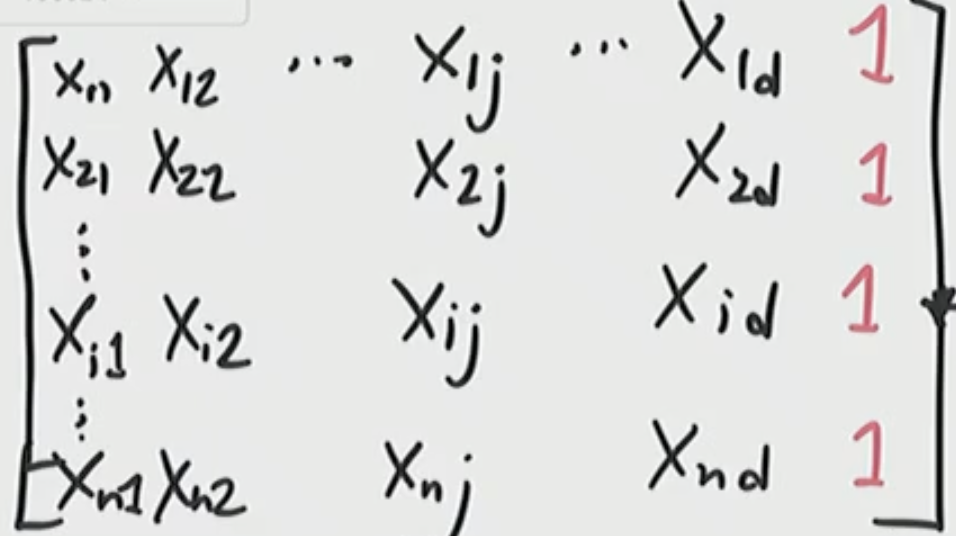 [ x₁₁ x₁₂ ... x₁ⱼ ... x₁d 1 ]
x₂₁ x₂₂ x₂ⱼ x₂d 1
⋮
xᵢ₁ xᵢ₂ xᵢⱼ xᵢd 1
⋮
xₙ₁ xₙ₂ xₙⱼ xₙd 1